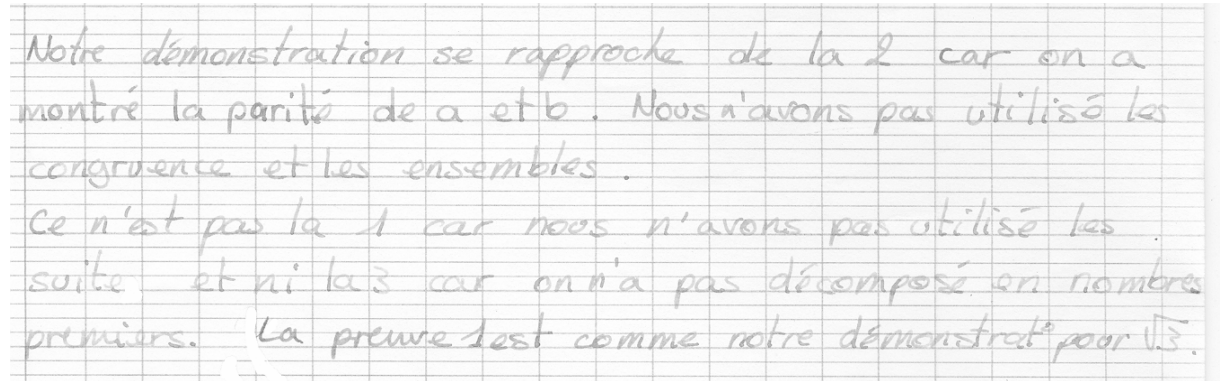 Notre démonstration se rapproche de la 2 car on a
montré la parité de a et b. Nous n'avons pas utilisé les
congruence et les ensembles.
Ce n'est pas la 1 car nous n'avons pas utilisé les
suite et ni la 3 car on n'a pas décomposé en nombres
premiers. La preuve 1 est comme notre démonstrat° pour √3.